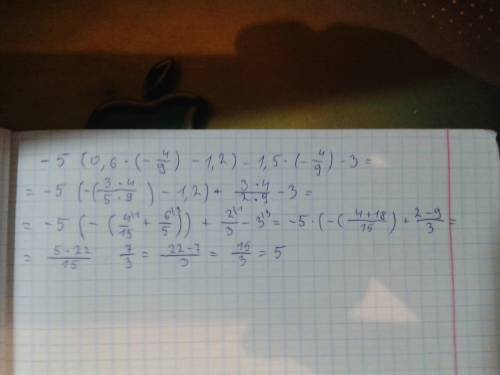 -5 (0,6 · (-4/9) - 1,2) - 1,5 · (-4/9) - 3 =
= -5 (-(3·4/5·9) - 1,2) + 3·4/2·9 - 3 =
= -5 (-(4\1/15 + 6\3/5)) + 2\1/3 - 3\3 = -5 · (-(4+18/15) + 2-9/3 =
= 5·22/15 7/3 = 22-7/3 = 15/3 = 5